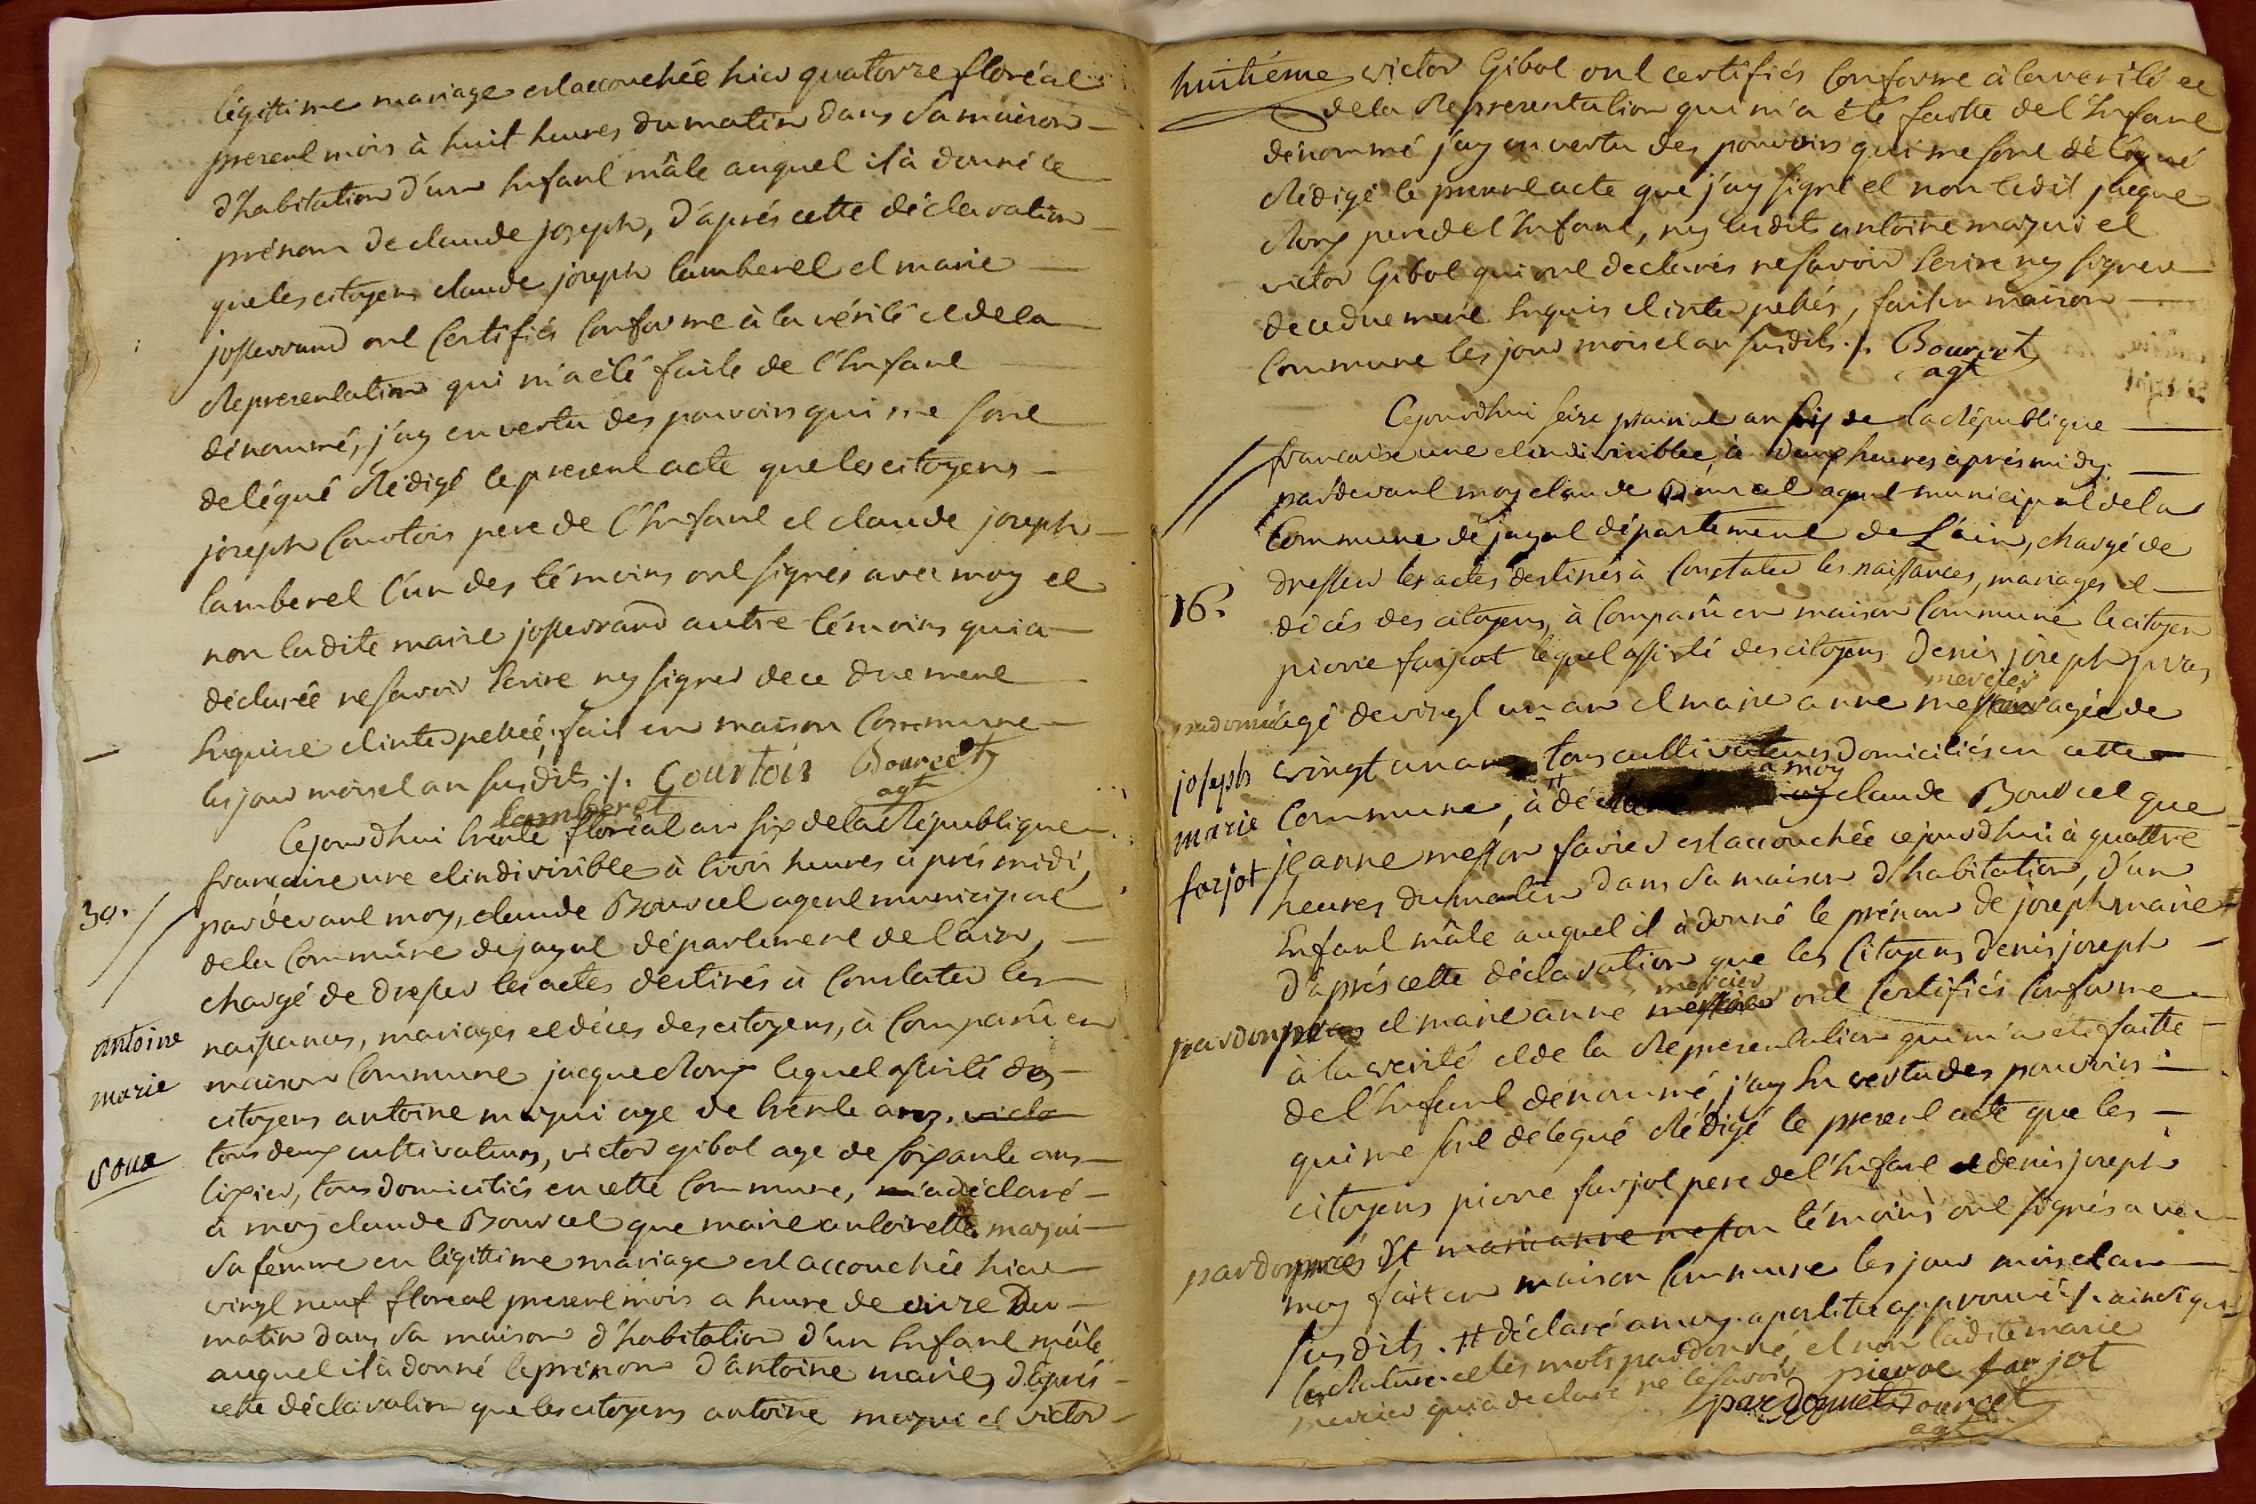 légittime mariage est accouchée hier quatorze floréal
present mois à huit heures du matin dans sa maison
d'habitation d'un Enfant mâle auquel il à donné le
prénom de claude joseph, d'aprés cette déclaration
que les citoyens claude joseph lamberel et marie
josserrand ont Certifiés Conforme à la vérité et de la
Representation qui m'a été faite de l'Enfant
dénommé, j'ay en vertu des pouvoirs qui me sont
delégué Rédigé le present acte que les citoyens
joseph Courtois pere de l'Enfant et claude joseph
lamberel l'un des témoins ont signés avec moy et
non ladite marie josserrand autre témoins qui a
déclarée ne savoir Ecrire ny signer de ce duement
Enquise et interpellée, fait en maison Commune
les jour mois et an susdits ./. Courtois Bourcet
lamberet agt
Cejourdhui trente floréal an six de la République
francaise une et indivisible à trois heures après midi,
30.
pardevant moy, claude Bourcel agent municipal
de la Commune de jayat département de l'ain,
chargé de dresser les actes destinés à Constater les
naissances, mariages et décès des citoyens, à Comparû en
antoine
maison Commune jacque Roux lequel assisté des
marie
citoyens antoine mazui age de trente ans, victo
tous deux cultivateurs, victor gibol age de soixante ans
Roux
tixier, tous domiciliés en cette Commune, m'a déclaré
a moy claude Bourcel que marie antoinette mazui
sa femme en légittime mariage est accouchée hier
vingt neuf floréal present mois a heure de onze Du
matin dans sa maison d'habitation d'un Enfant mâle
auquel il à donné le prénom d'antoine marie, d'après
cette déclaration que les citoyens antoine mazui et victor
huitiéme victor Gibol ont certifiés Conforme à la verité et
de la Representation qui m'a été faitte de l'Enfant
dénommé j'ay en vertu des pouvoirs qui me sont délégué
Rédigé le present acte que j'ay signé et non ledit jacque
Roux pere de l'Enfant, ny lesdits antoine mazui et
victor Gibol qui ont declarés ne savoir Ecrire ny signer
de ce duement Enquis et interpellés, fait en maison
Commune les jour mois et an susdits ./. Bourcet
agt
Cejourdhui seize prairial an six de la République
francaise une et indivisible, à deux heures après midy
pardevant moy claude Bourcel agent municipal de la
Commune de jayat département de L'ain, chargé de
dresser les actes destinés à Constater les naissances, mariages et
16.
décès des citoyens, à Comparû en maison Commune le citoyen
pierre farjeot lequel assisté des citoyens Denis joseph
mercier
agé de vingt un an et marie anne agée de
joseph
vingt un ans tous cultivateurs domiciliés en cette
a moy
marie
Commune, à claude Bourcel que
farjot
jeanne messon favier est accouchée cejourdhui à quattre
heures du matin dans sa maison d'habitation, d'un
Enfant mâle auquel il à donné le prénom de joseph marie
D'après cette déclaration que les Citoyens denis joseph
mercier
et marie anne ont Certifiés Conforme
à la verité et de la Representation qui m'a été faitte
de l'Enfant dénommé, j'ay En vertu des pouvoirs
qui me sont delegué Rédigé le present acte que les
citoyens pierre farjot pere de l'Enfant et denis joseph
marie anne messon témoins ont signés avec
moy fait en maison Commune les jour mois et an
susdits . # déclaré a moy . apostille approuvé ./. ainsi que
les Rature et les mots pardonné, et non ladite marie
mercier qui à declaré ne le savoir pierre farjot
Bourcet
agt